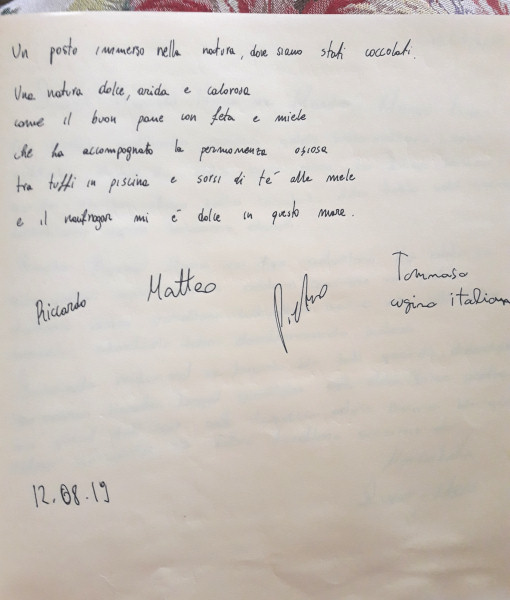 Un posto immerso nella natura, dove siamo stati coccolati.
Una natura dolce, arida e calorosa
come il buon pane con feta e miele
che ha accompagnato la permanenza oziosa
tra tuffi in piscina e sorsi di té alle mele
e il naufragar mi é dolce in questo mare.
Riccardo Matteo Pietro Tommaso
cugino italiano
12.08.19